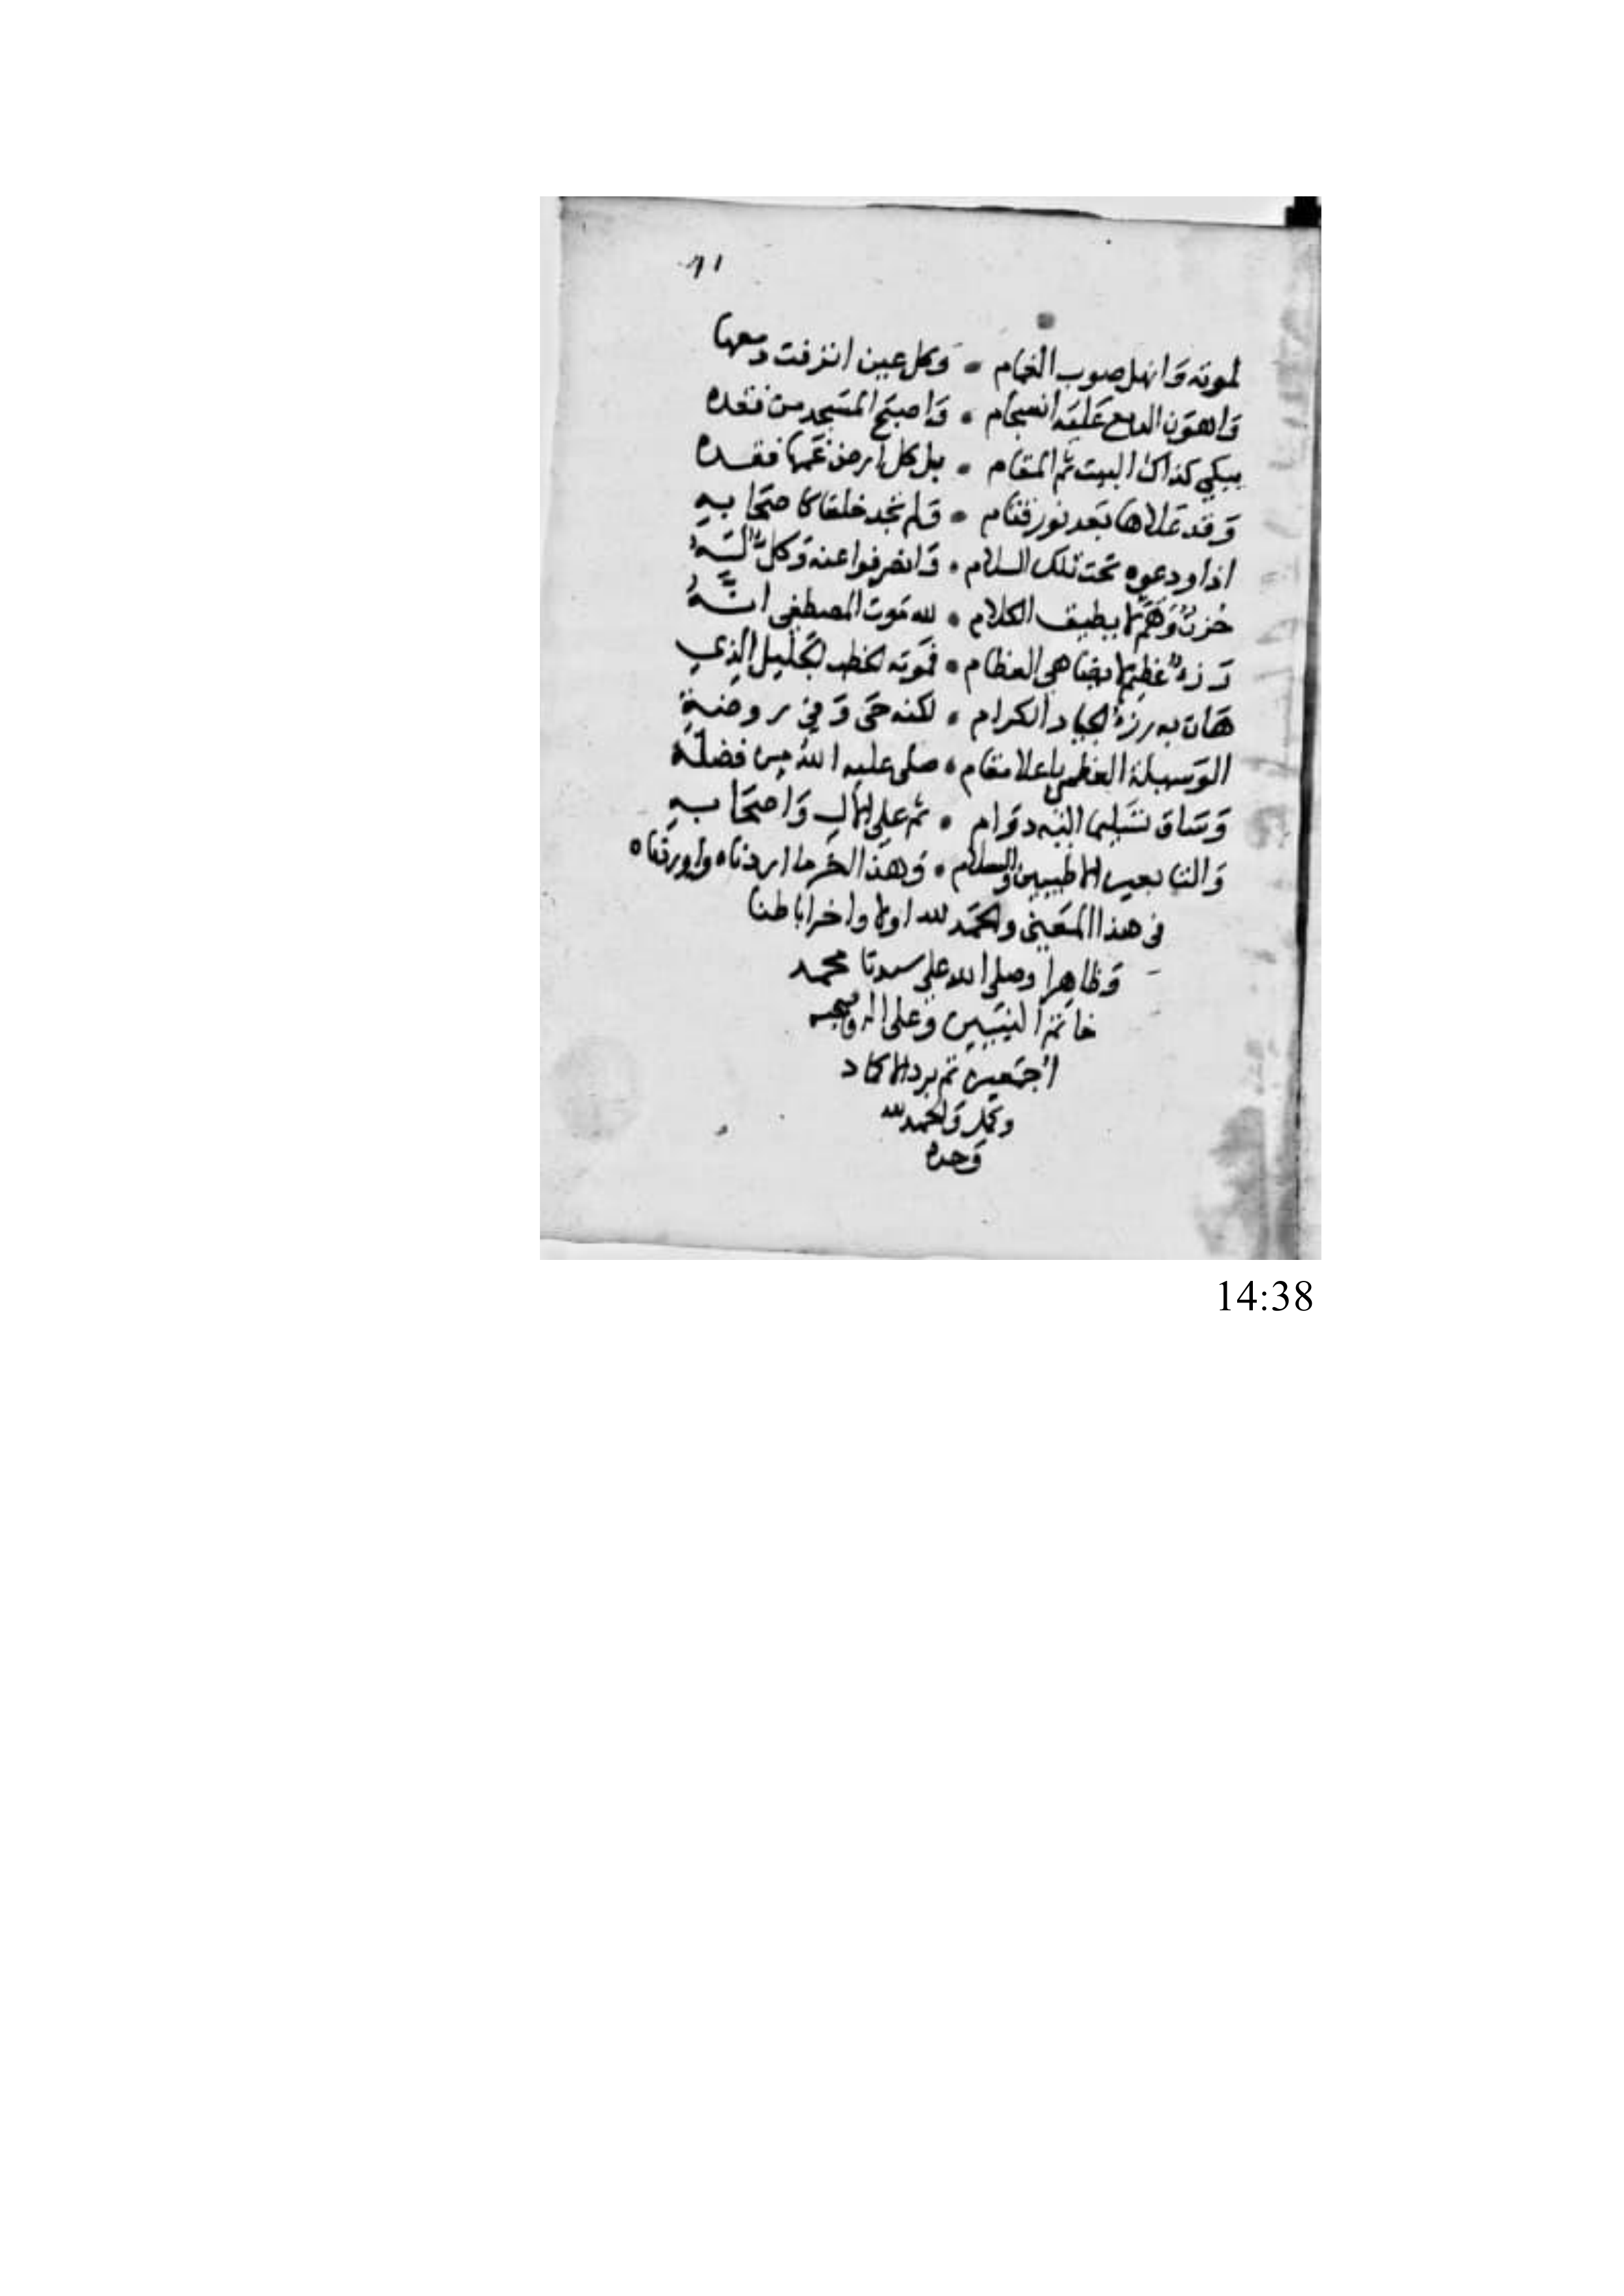 ٦١
لموته وَانهل صوب الغمام • وكل عين انزفت دمعها
وَاهوَن الدمع عَليَه انسجام • وَاصبَح المسَجد من فقده
يبكي كذاك البيت ثم المقام • بل كل ارض عَمها فقده
وَقد عَلاها بَعد نور قتام • وَلم نجد خلقا كاصحَابهِ
اذا ودعوه تحت تلك السلام • وَانصرفوا عنه وَكلٌ لَهُ
حُزنٌ وَهَمٌ لا يطيق الكلام • لله مَوت المصطفى انَّهُ
رَزءٌ عَظيم لا يضاهى العظام • فموَته الخطب الجَليل الذي
هَان به رزء الجياد الكرام • لكنه حَي وَفي روضةِ
الوَسيلة العظمى باعلا مقام • صلى عليه اللهُ من فضلهُ
وَسَاق تسَليما اليَه دوَام • ثم على الالِ وَاصحَابهِ
وَالتابعين الاطيبين والسلام • وَهذا اخر ما اردناه واوردَناه
في هذا المَعنى والحَمد لله اولا واخرا باطنا
وَظاهِرا وصلى الله على سيدنا محمد
خاتم النبَيين وَعلى اله وصحبه
اجمَعين تم برد الاكباد
وكمل وَالحمد لله
وَحده
14:38